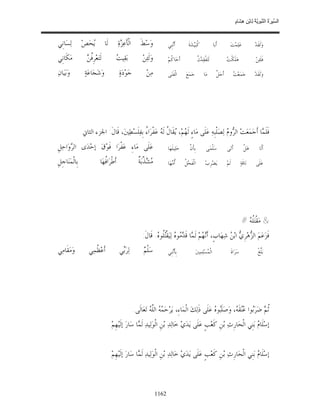 السِّيرَةُ النَّبَوِيَّةُ لِابْنِ هِشَامٍ
وَلَقَدْ عَلِمْتَ أَنَا كَبِيْشَهُ أَنَّنِي وَسْطَ الْأَعِزَّةِ لَا يُحْصَ لِسَانِي
فَلَئِنْ هَلَكْتُ لَتَفْقِدُنَّ أَخَاكُمْ وَلَئِنْ بَقِيتُ لَتَعْرِفُنَّ مَكَانِي
وَلَقَدْ جَمَعْتُ أَجَلَّ مَا جَمَعَ الْفَتَى مِنْ جَوْدَةٍ وَشَجَاعَةٍ وَبَيَانِ
فَلَمَّا أَجْمَعَتْ الرُّومُ لِصَلْبِهِ عَلَى مَاءٍ لَهُمْ، يُقَالُ لَهُ عَفْرَاءُ بِفِلَسْطِينَ، قَالَ الجزء الثاني
أَلَا هَلْ أَتَى سَلْمَى بِأَنَّ حَلِيلَهَا عَلَى مَاءِ عَفْرَا فَوْقَ إِحْدَى الرَّوَاحِلِ
عَلَى نَاقَةٍ لَمْ يَضْرِبْ الْفَحْلُ أُمَّهَا مُشَذَّبَةٌ أَطْرَافُهَا بِالْمَنَاجِلِ
مَقْتَلُهُ
فَزَعَمَ الزُّهْرِيُّ ابْنُ شِهَابٍ، أَنَّهُمْ لَمَّا قَدَّمُوهُ لِيَقْتُلُوهُ. قَالَ
بَلِّغْ سَرَاةَ الْمُسْلِمِينَ بِأَنَّنِي سَلْمٌ لِرَبِّي أَعْظُمِي وَمَقَامِي
ثُمَّ ضَرَبُوا عُنُقَهُ، وَصَلَبُوهُ عَلَى ذَلِكَ الْمَاءِ، يَرْحَمُهُ اللَّهُ تَعَالَى
إسْلَامُ بَنِي الْحَارِثِ بْنِ كَعْبٍ عَلَى يَدَيْ خَالِدِ بْنِ الْوَلِيدِ لَمَّا سَارَ إلَيْهِمْ
إسْلَامُ بَنِي الْحَارِثِ بْنِ كَعْبٍ عَلَى يَدَيْ خَالِدِ بْنِ الْوَلِيدِ لَمَّا سَارَ إلَيْهِمْ
1162